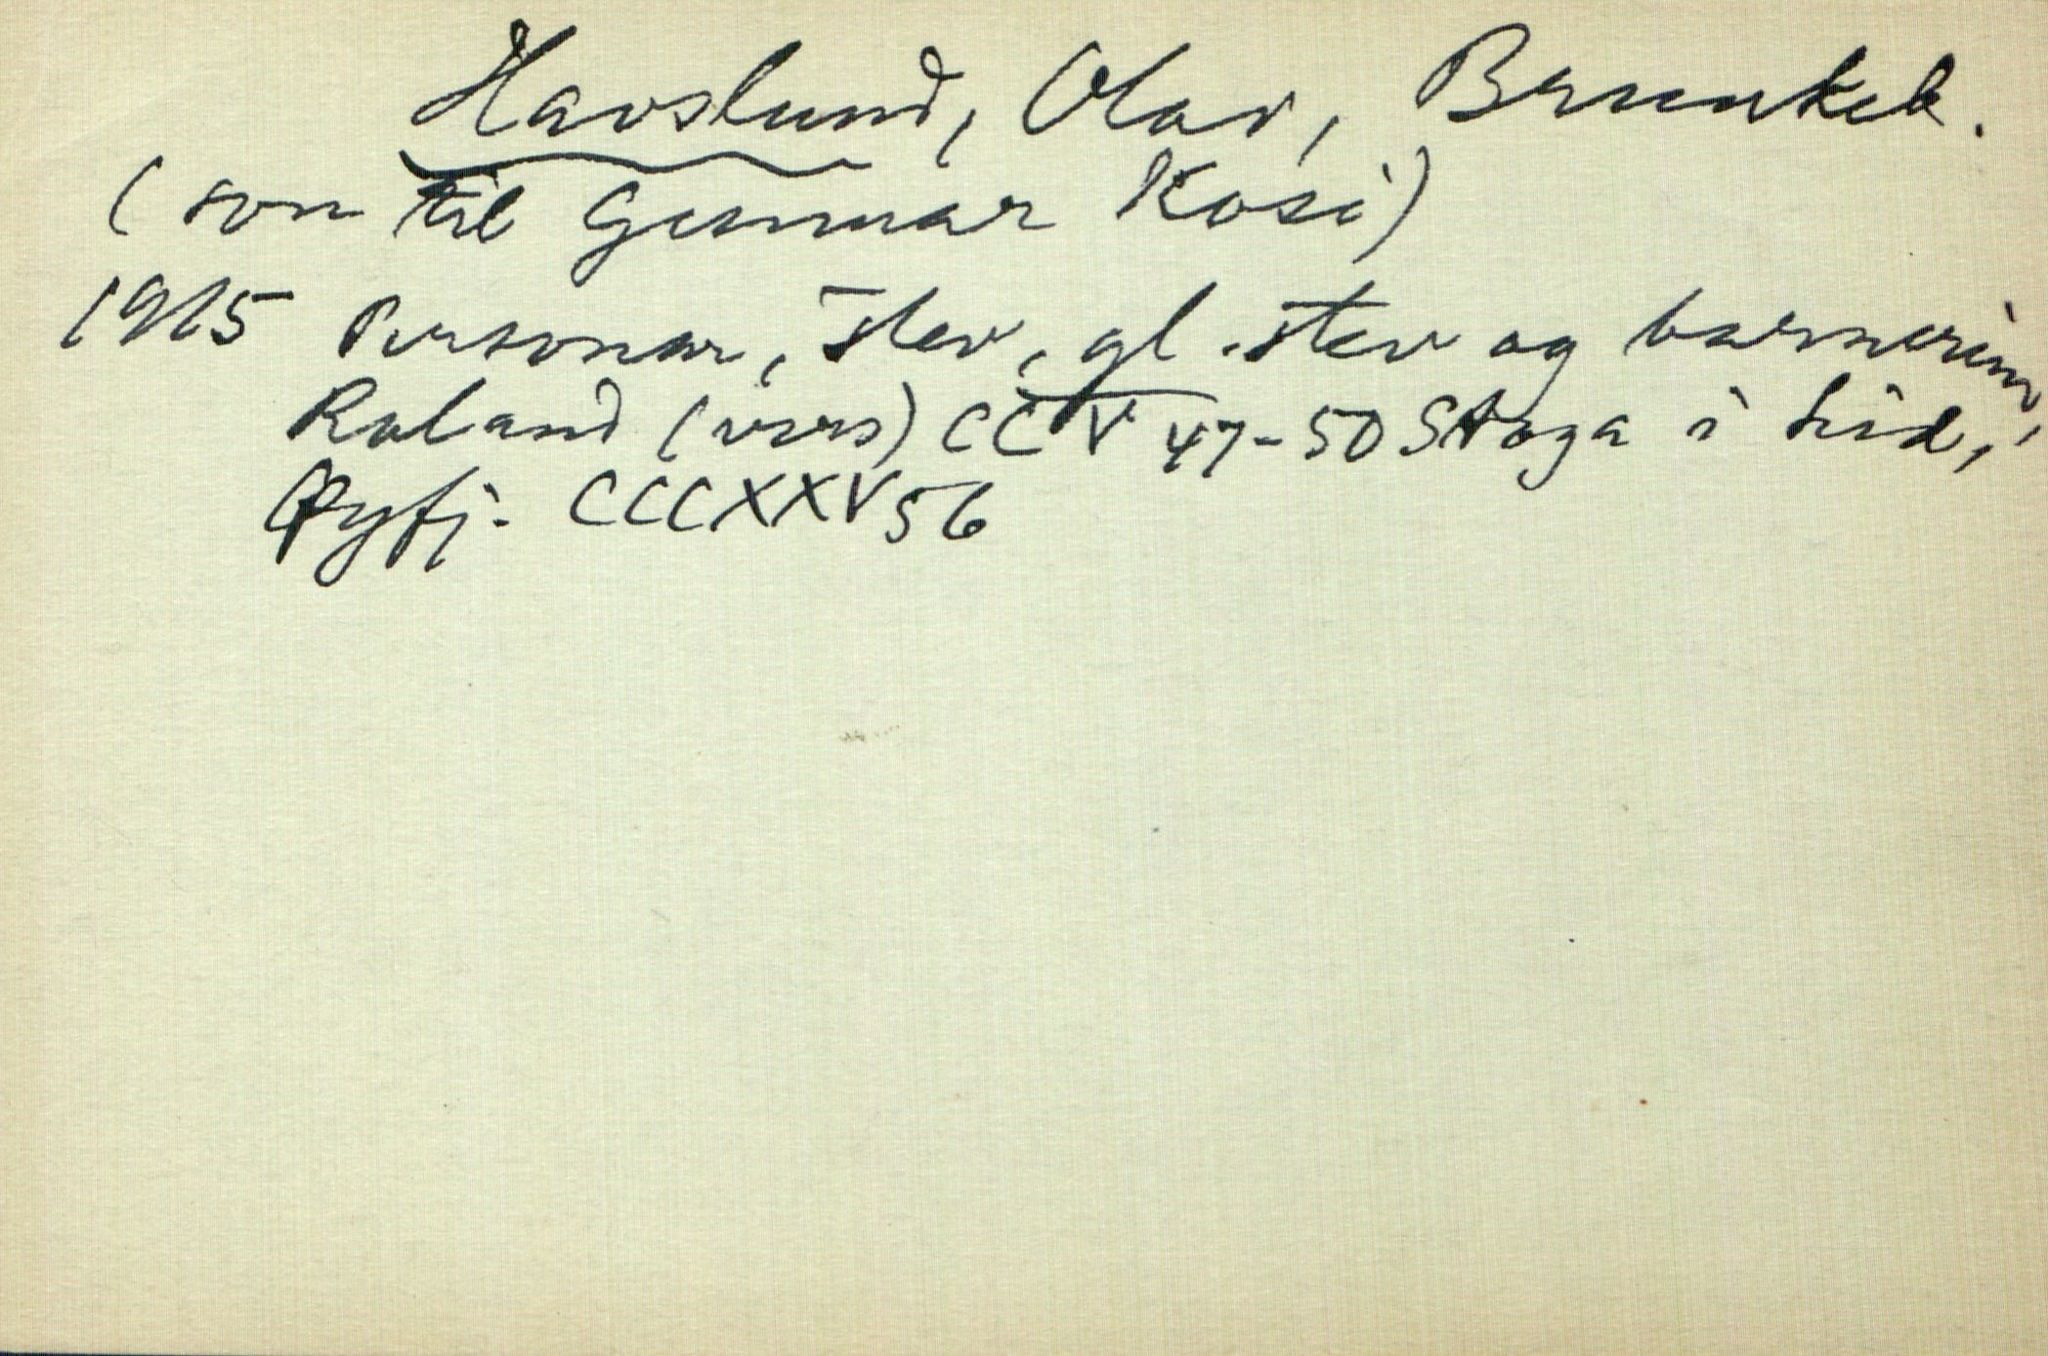 Havslund, Olav, Brunkeb.
(son til Gunnar Kosi)
1915 Personar, stev, gl. stev og barnerim,
Roland (vers) CCV 47-50 Stoga i Lid,
Øyfj. CCCXXV 56